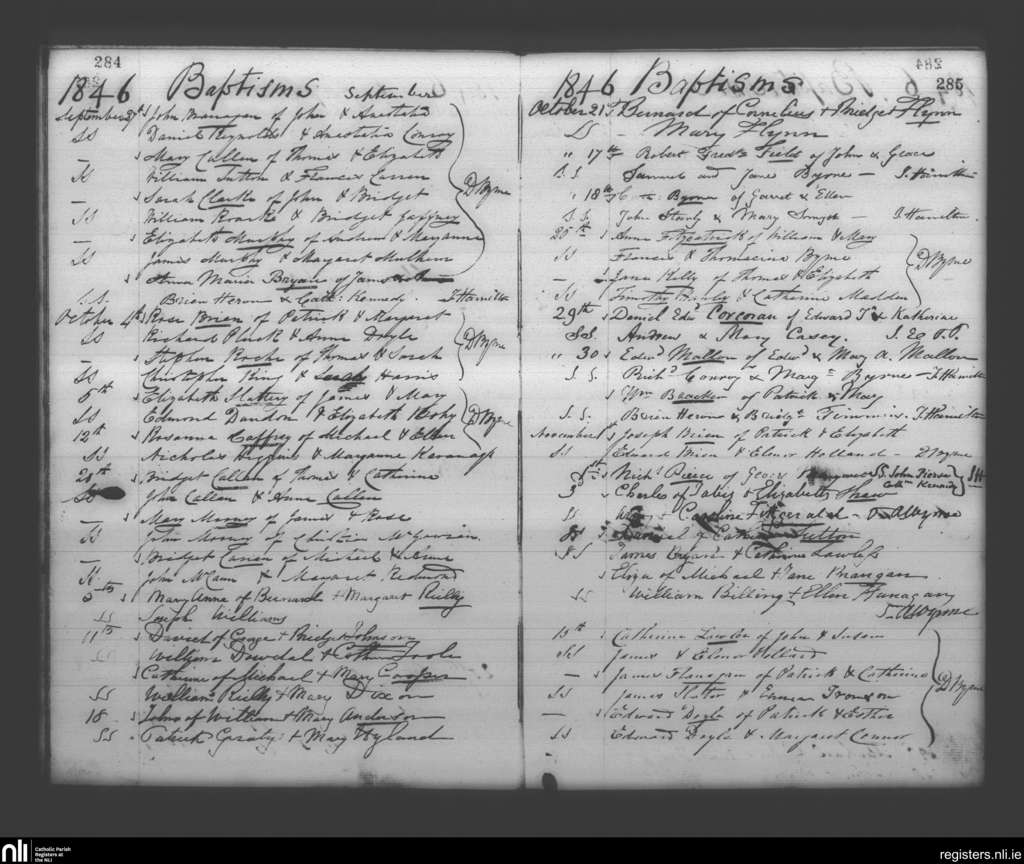 284
1846 Baptisms September
September 27th John Managan of John & Anastatia
SS Daniel Reynolds & Anastatia Conroy
— Mary Cullen of Thomas & Elizabeth
SS William Sutton & Frances Larren
— Sarah Clarke of John & Bridget
SS William Roark & Bridget Gaffney
— Elizabeth Murphy of Andrew & Maryanne
SS James Murphy & Margaret
D Byrne
Anna Maria Bryan of James
S.S. Brien Heron & Cath: Kennedy. J Hamilton
October 4th Rose Brien of Patrick & Margaret
SS Richard Pluck & Anne Doyle
— Stephen Roche of Thomas & Sarah
SS Christopher King & Sarah Harris
D Byrne
5th Elizabeth Slattery of James & Mary
SS Edmond Dandon & Elizabeth
12th Rosanna Caffrey of Michael & Ellen
SS Nicholas Higgins & Maryanne Kavanagh
D Byrne
20th Bridget Cullen of Thomas & Catherine
SS John Cullen & Anne Cullen
— Mary Morney of James & Rose
SS John Morney of Christian McGovern
— Bridget of Michael & Anne
SS. John McCann & Margaret Redmond
5th MaryAnne of Bernard + Margaret Reilly
SS Joseph Williams
11th Daniel of George + Bridget Johnson
William Dowdal & Catherine Toole
Catherine of Michael + Mary Cooper
SS William Reilly + Mary Dixon
18 John of William + Mary Anderson
SS Patrick Grealy + Mary Hyland
1846 Baptisms
285
October 21st Bernard of Cornelius + Bridget Flynn
SS — Mary Flynn
" 17th Robert Fredk Field of John & Grace
S.S. Samuel and Jane Byrne — J. Hamilton
" 18th Byrne of Garret & Ellen
S.S. John & Mary — J Hamilton
25th Anne Fitzpatrick of William & Mary
SS Francis & Thomasina Byrne
— Jane Kelly of Thomas & Elizabeth
SS Timothy & Catherine Madden
D Byrne
29th Daniel Edwd Corcoran of Edward J & Katherine
SS. Andrew & Mary Casey.
" 30 Edwd Mallon of Edwd & Mary A. Mallon
S.S. Richd Conroy & Margt Byrne — J. Hamilton
Wm Bracken of Patrick & Mary
S.S. Brien Heron & Bridgt J. Hamilton
November 1 Joseph Brien of Patrick & Elizabeth
SS Edward Brien & Elenor Holland — D Byrne
Richd Pierce of George John Pierce Cathn Kennedy JH
3 Charles of & Elizabeth Shaw
SS & Caroline Fitzgerald — Byrne
8 of Catherine Sutton
SS James & Catherine Lawless
Eliza of Michael + Jane Brangan
SS William Billing + Ellen Flanagan
Byrne
15th Catherine Lawlor of John & Susan
SS James & Elenor Holland
— James Flanagan of Patrick & Catherine
SS James Slator & Emma
— Edward Doyle of Patrick & Esther
SS Edward Doyle & Margaret Connor
D Byrne
nli Catholic Parish
Registers at
the NLI
registers.nli.ie